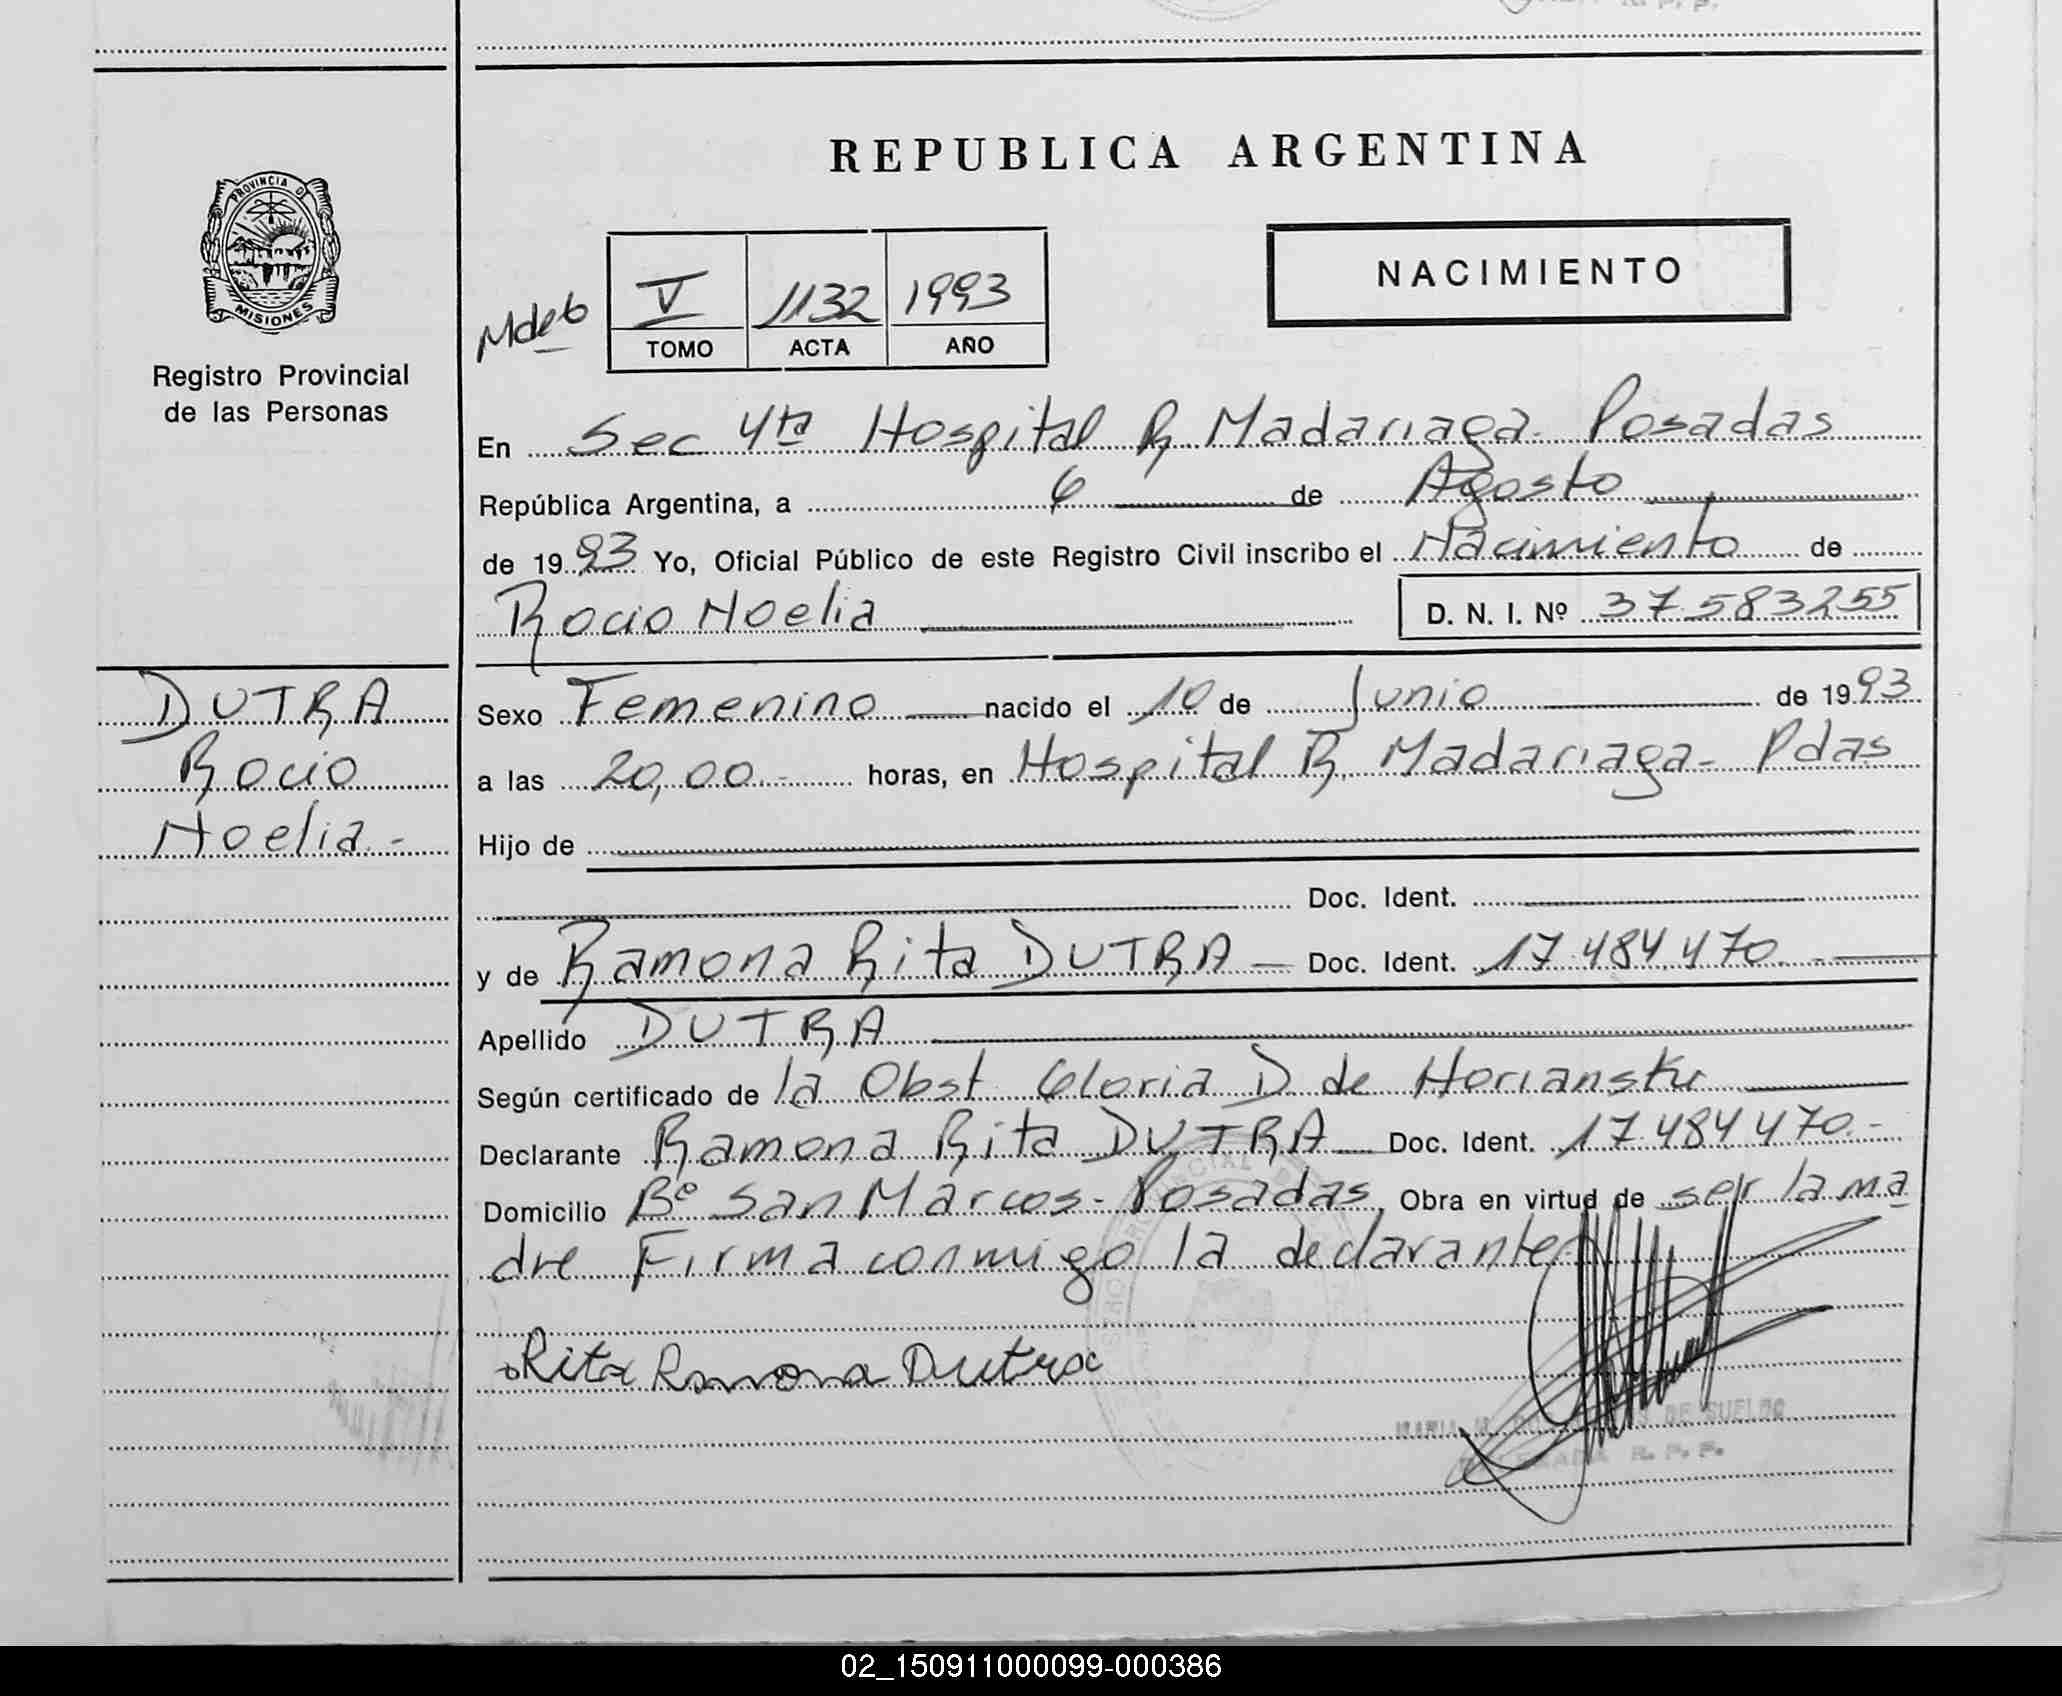 REPUBLICA ARGENTINA
PROVINCIA D
MISIONES
Registro Provincial
de las Personas
NACIMIENTO
V 1132 1993
TOMO ACTA AÑO
En Sec 4ta Hospital R Madariaga. Posadas
República Argentina, a 6 de Agosto
de 1993 Yo, Oficial Público de este Registro Civil inscribo el Nacimiento de
Rocio Noelia D. N. I. Nº 37.583255
DUTRA
Rocio
Noelia.-
Sexo Femenino nacido el 10 de Junio de 1993
a las 20,00.- horas, en Hospital R. Madariaga- Pdas
Hijo de
Doc. Ident.
y de Ramona Rita DUTRA — Doc. Ident. 17.484.470.-
Apellido DUTRA
Según certificado de la Obst. Gloria D de
Declarante Ramona Rita DUTRA — Doc. Ident. 17.484.470.-
Domicilio Bº San Marcos- Posadas, Obra en virtud de ser la ma
dre Firma conmigo la declarante
Rita Ramona Dutra
DE SUELDO
R. P. P.
02_150911000099-000386